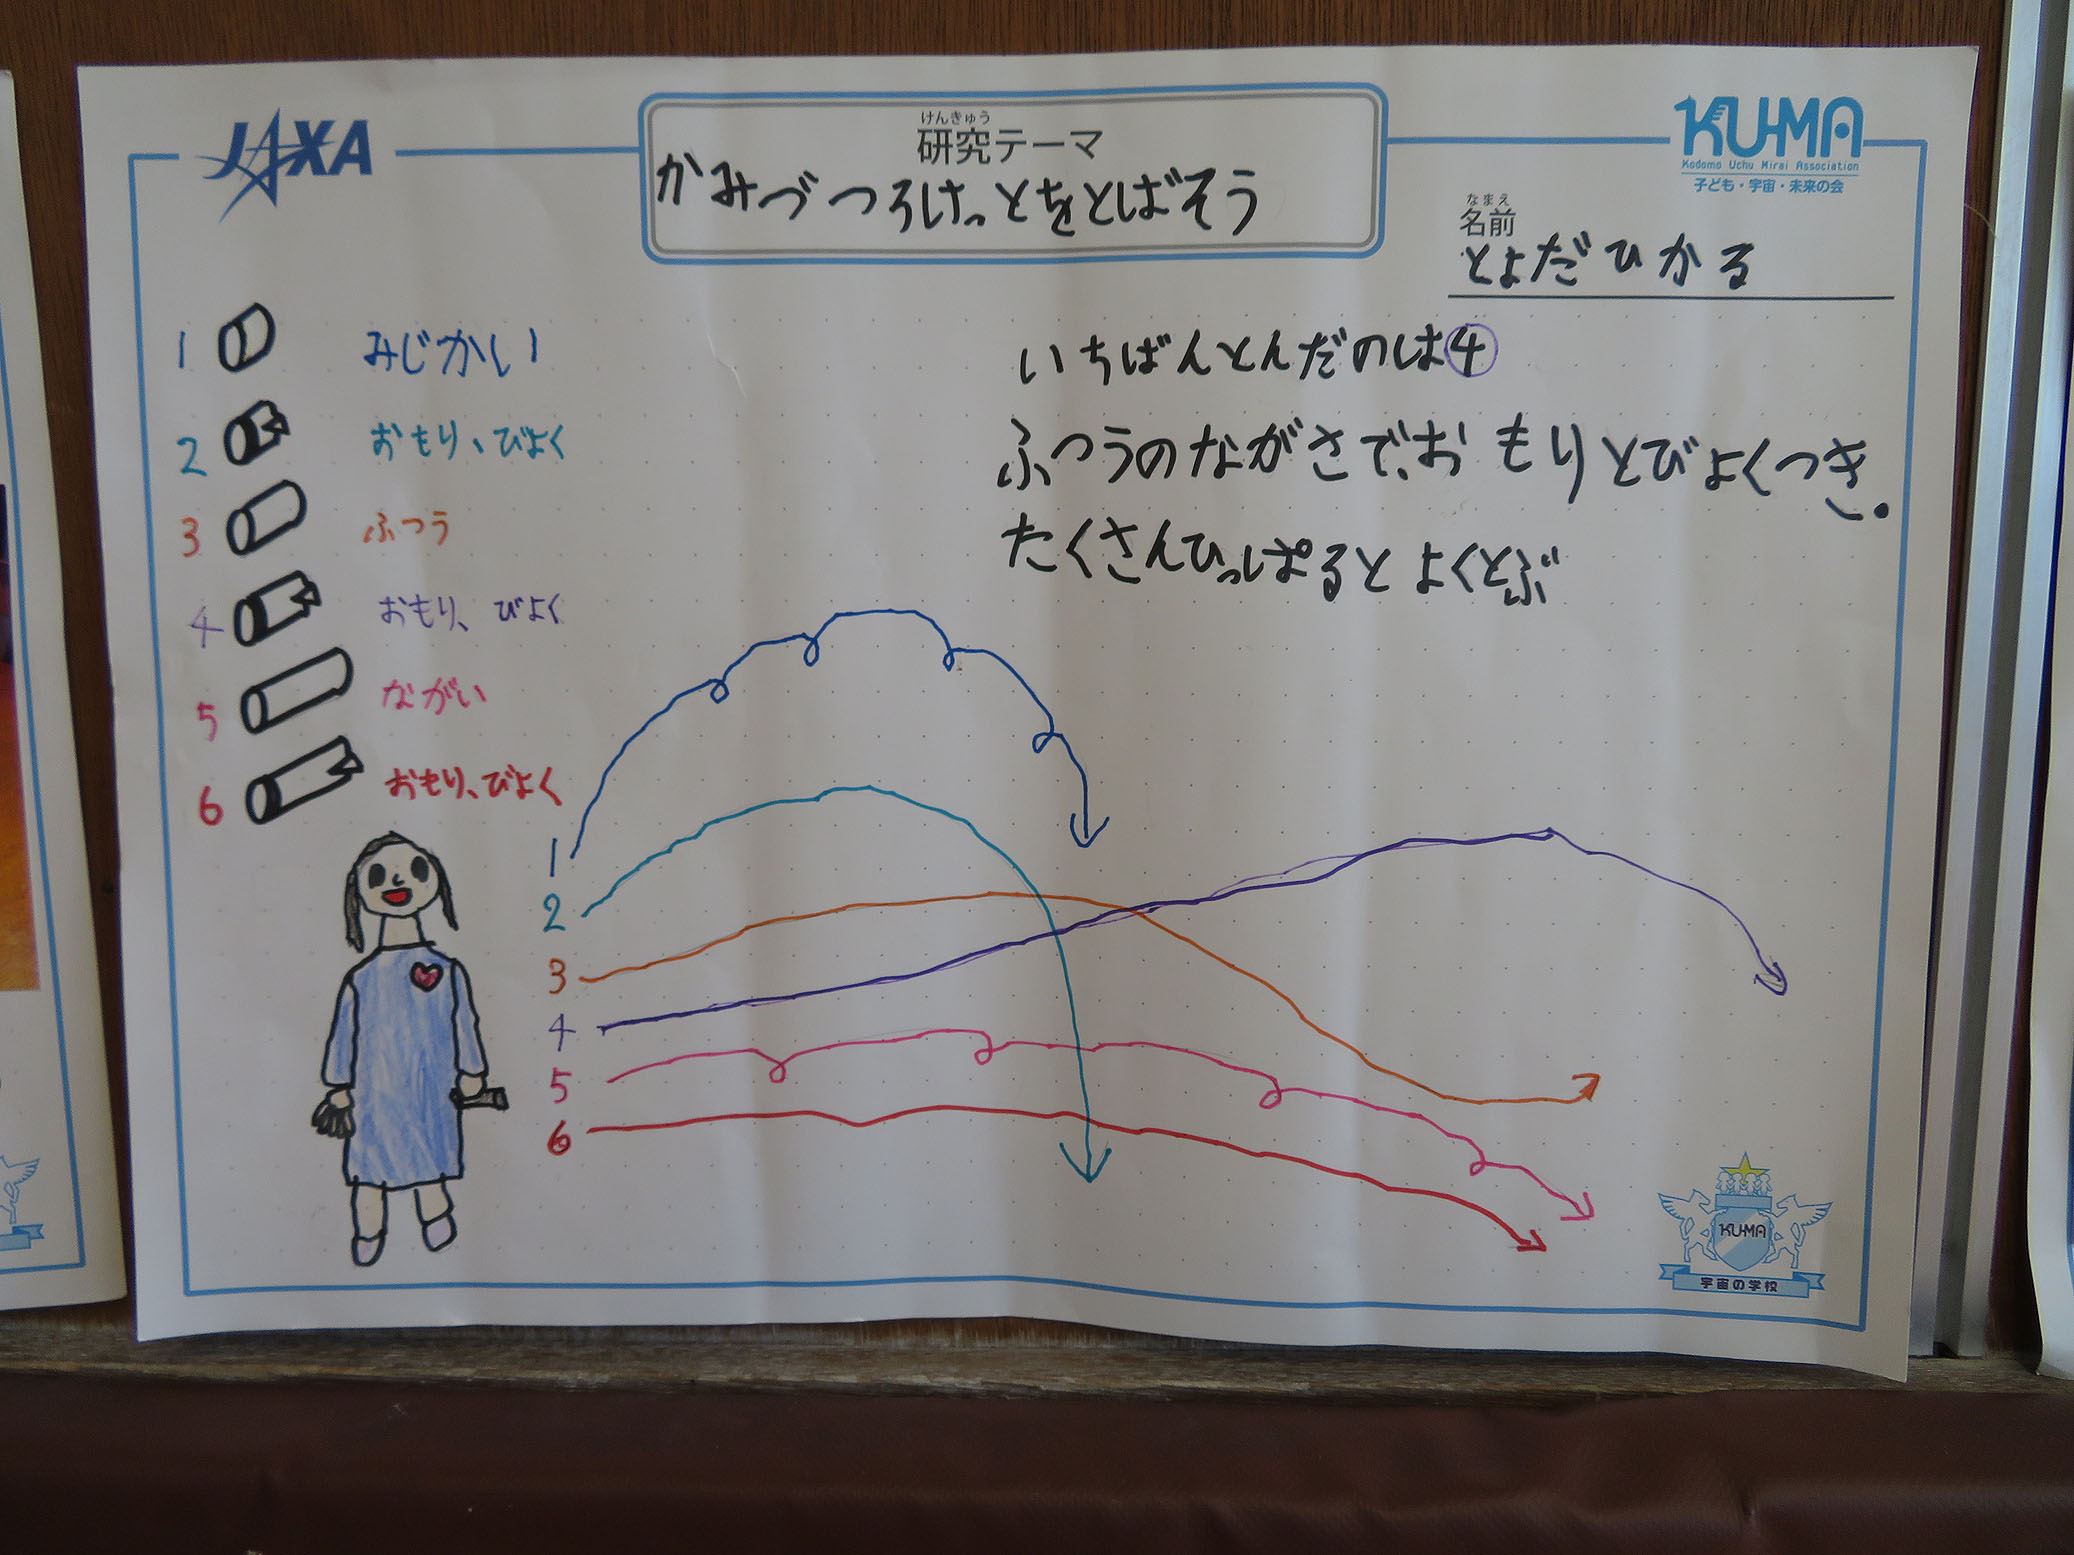 JAXA
けんきゅう
研究テーマ
かみづつろけっとをとばそう
KUMA
Kodomo Uchu Mirai Association
子ども・宇宙・未来の会
なまえ
名前
とよだひかる
1 みじかい
2 おもり、びよく
3 ふつう
4 おもり、びよく
5 ながい
6 おもり、びよく
いちばんとんだのは④
ふつうのながさで、おもりとびよくつき.
たくさんひっぱるとよくとぶ
1
2
3
4
5
6
KUMA
宇宙の学校